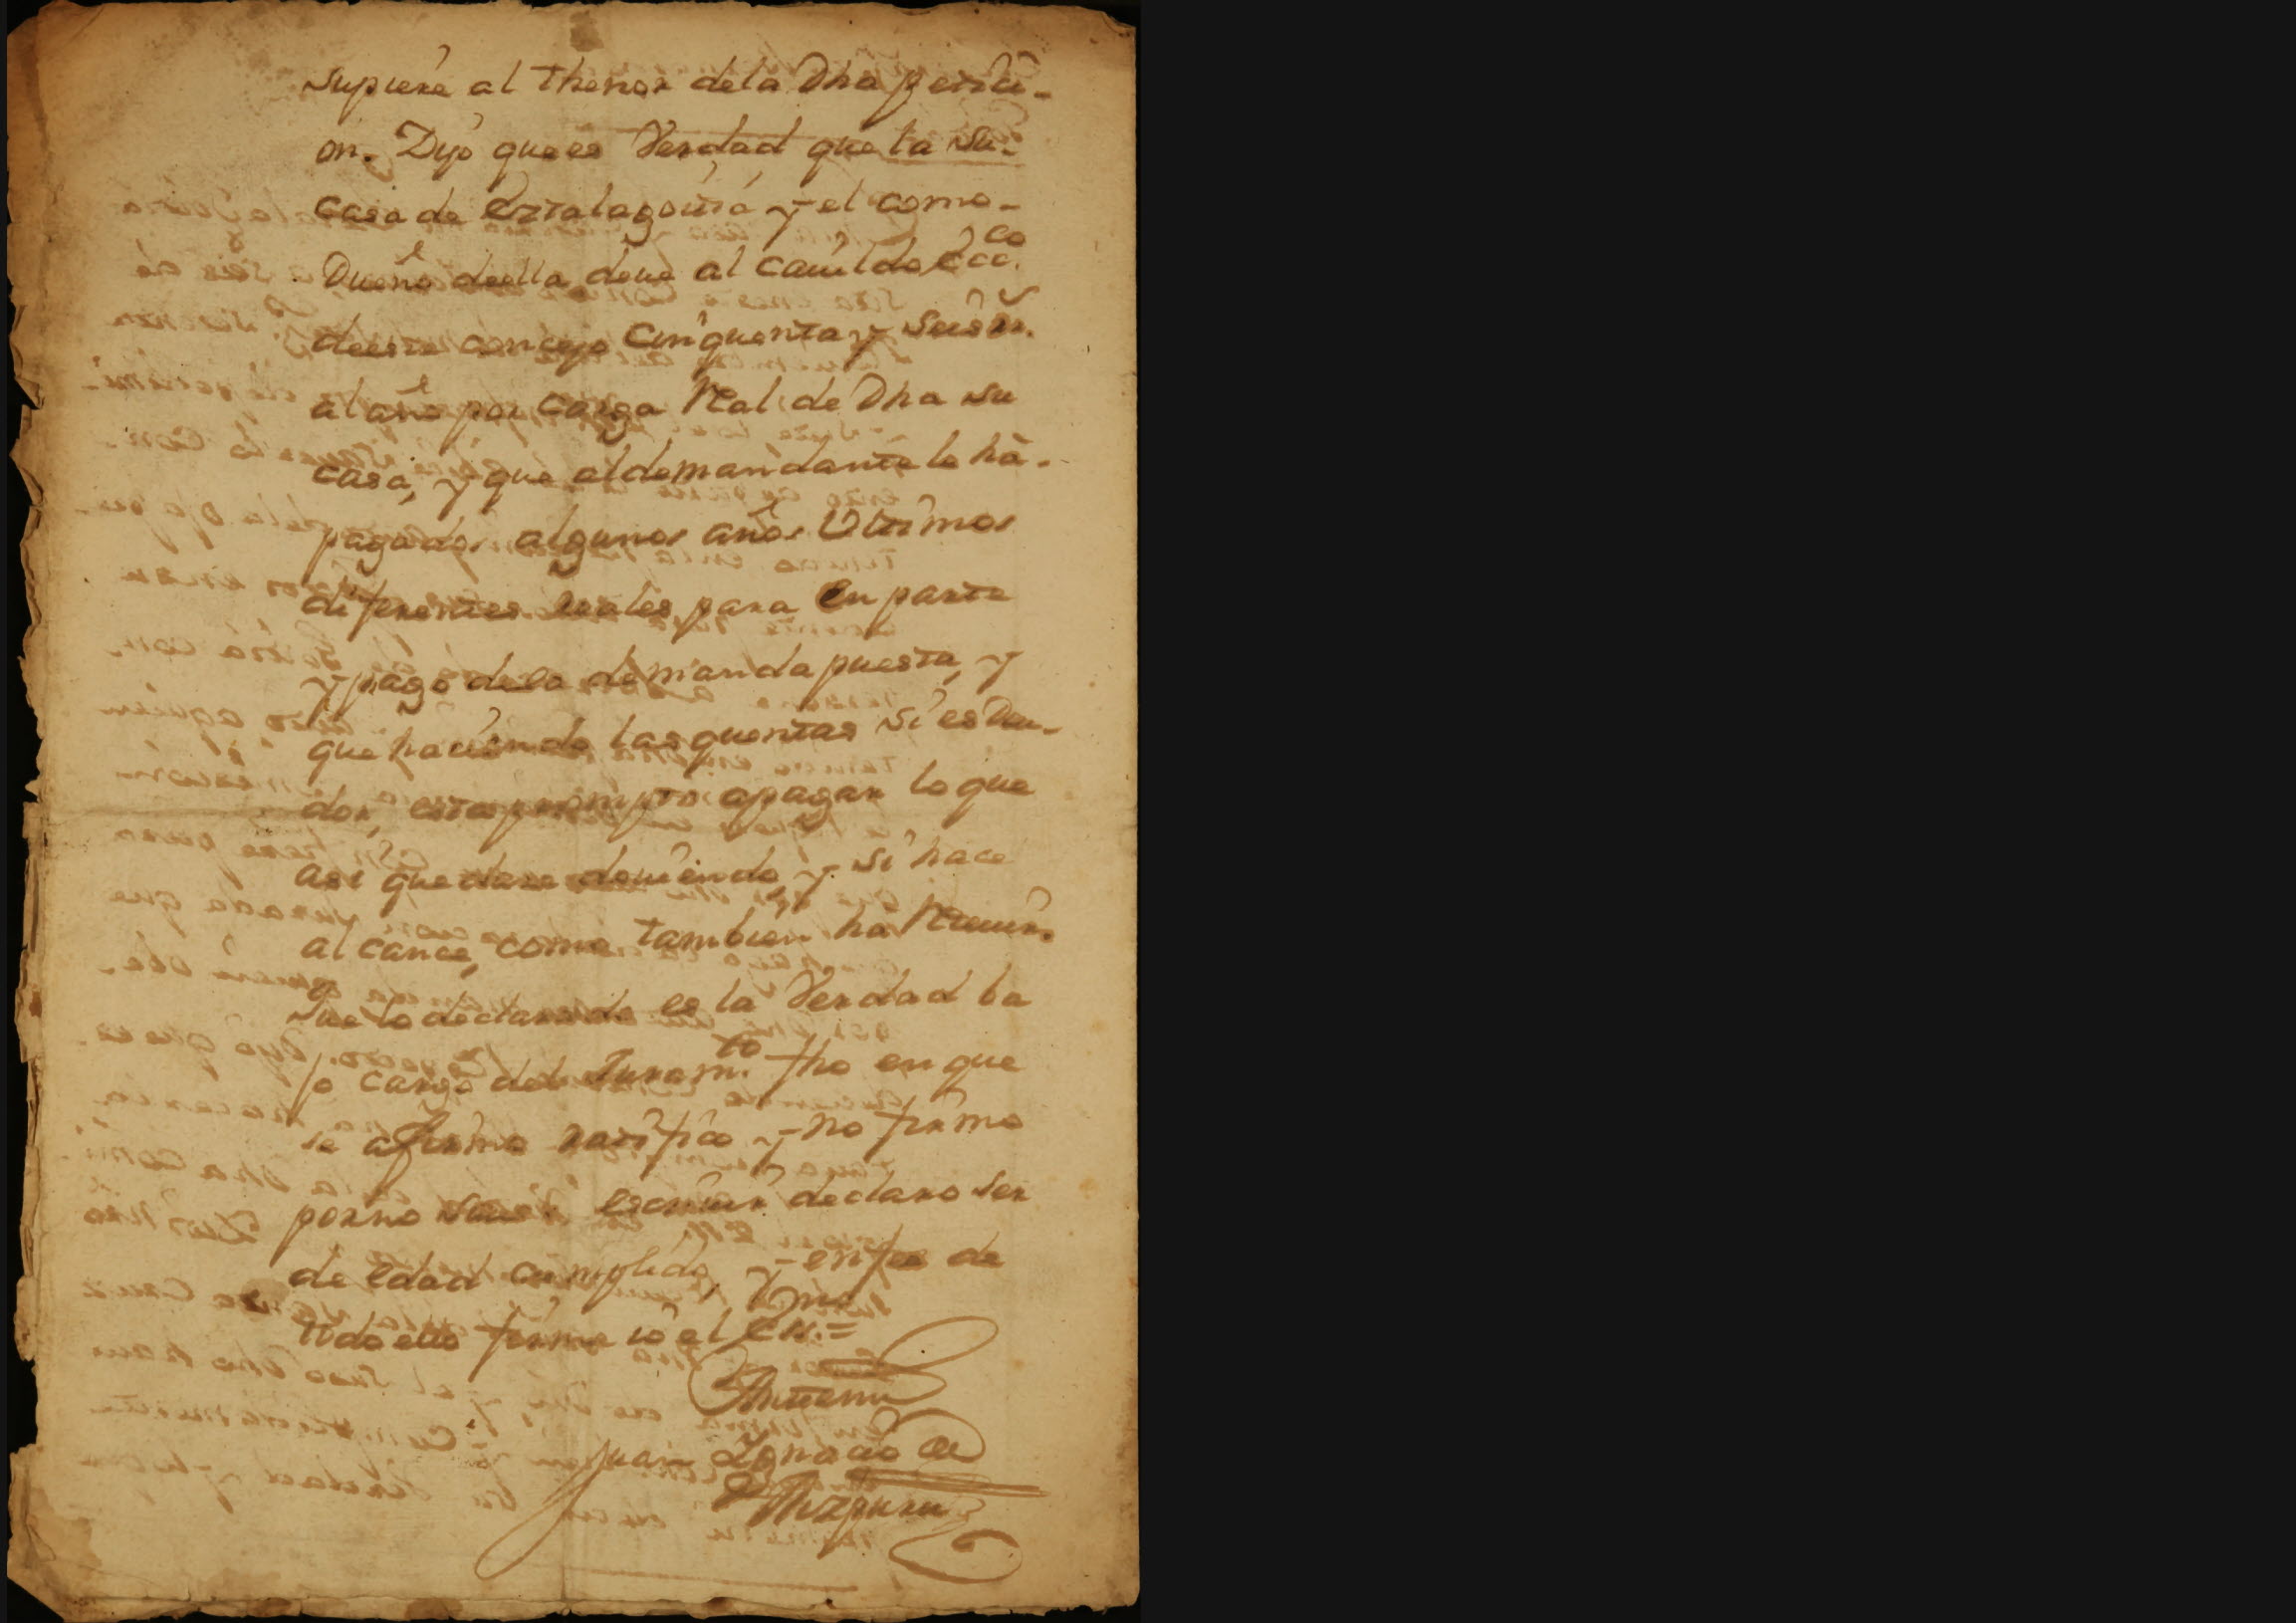 supiere al thenor dela Dha petici-
on. Dijo que es Verdad que la su
casa de Eztalagoitia y el como
Dueño deella deve al cavildo ecc.co
deeste concejo Cinquenta y Seis rs.
al año por carga Real de Dha su
casa, y que al demandante le há
pagado, algunos años Ultimos
diferentes reales para En parte
y pago dela demanda puesta, y
que haciendo las quentas si es Deu-
dor, esta prompto apagar lo que
asi quedare deviendo y si hace
alcance, como tambien ha
Que lo declarado es la Verdad ba
jo cargo del Juram.to fho en que
se afirmo ratifico y no firmo
por no saver escrivir declaro ser
de edad cumplida, y en fee de
todo ello firme io el Esno.=
Antemi
Juan Ignacio de